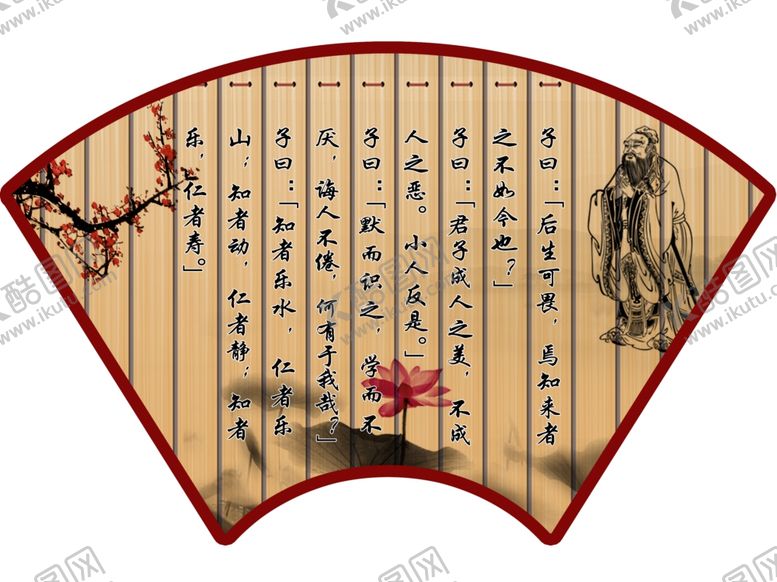 子曰：「后生可畏，焉知来者
之不如今也？」
子曰：「君子成人之美，不成
人之恶。小人反是。」
子曰：「默而识之，学而不
厌，诲人不倦，何有于我哉？」
子曰：「知者乐水，仁者乐
山；知者动，仁者静；知者
乐，仁者寿。」
酷图网
www.ikutu.com